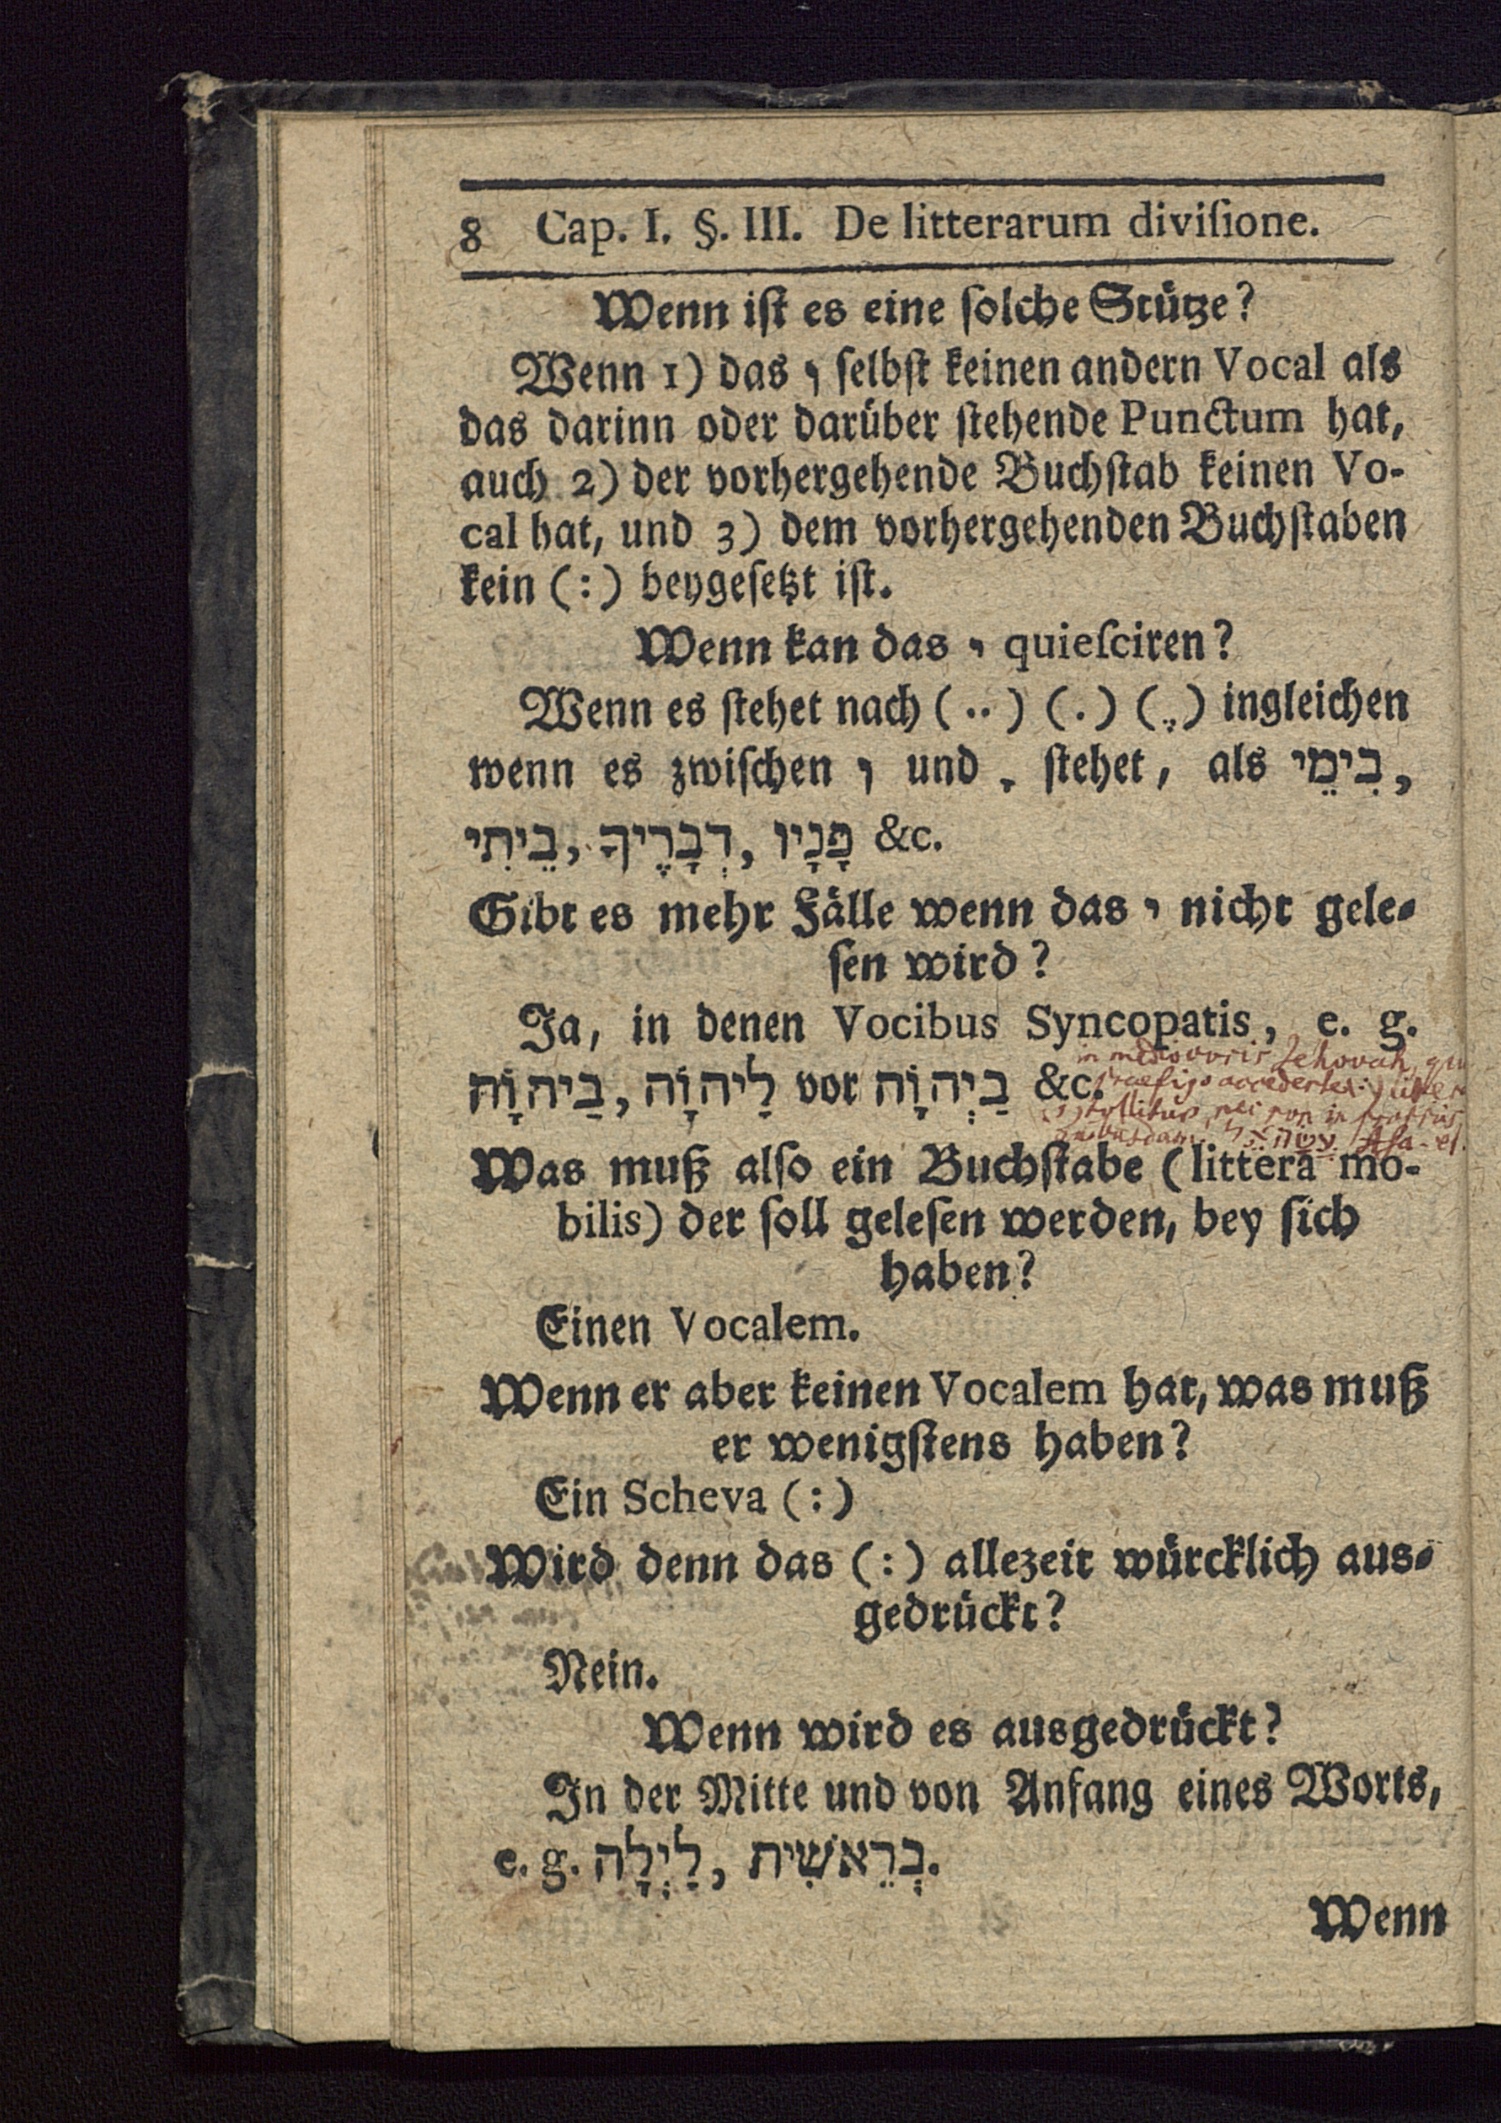 8 Cap. I. §. III. De litterarum diviſione.
Wenn iſt es eine ſolche Stütze?
Wenn 1) das ו ſelbſt keinen andern Vocal als
das darinn oder darüber ſtehende Punctum hat,
auch 2) der vorhergehende Buchſtab keinen Vo-
cal hat, und 3) dem vorhergehenden Buchſtaben
kein (:) beygeſetzt iſt.
Wenn kan das י quieſciren?
Wenn es ſtehet nach (..) (.) (ֶ) ingleichen
wenn es zwiſchen ו und ָ ſtehet, als בִימֵי,
בֵיתִי, דְבָרֶיךָ, פָּנָיו &c.
Gibt es mehr Fälle wenn das י nicht gele-
ſen wird?
Ja, in denen Vocibus Syncopatis, e. g.
בַיהוָֹה, לַיהוָֹה vor בַיְהוָֹה &c.
in Jehovah,
Was muß alſo ein Buchſtabe (littera mo-
bilis) der ſoll geleſen werden, bey ſich
haben?
Einen Vocalem.
Wenn er aber keinen Vocalem hat, was muß
er wenigſtens haben?
Ein Scheva (:)
Wird denn das (:) allezeit würcklich aus-
gedrückt?
Nein.
Wenn wird es ausgedrückt?
In der Mitte und von Anfang eines Worts,
e. g. לַיְלָה, בְרֵאשִׁית.
Wenn